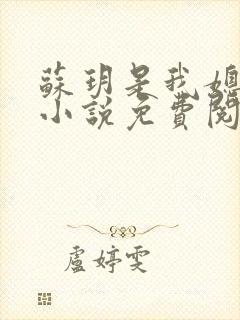 蘇玥是我媳
小說免費閱
盧婷雯